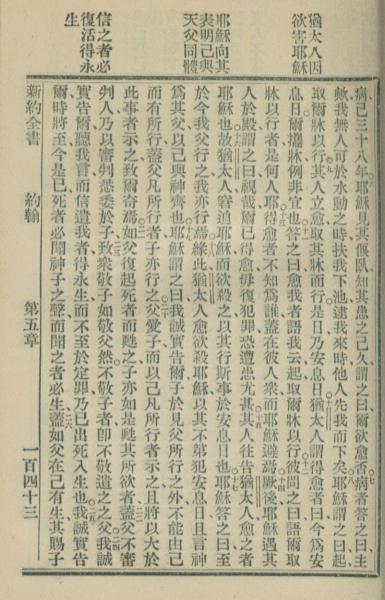 猶太人因
欲害耶穌
耶穌向其
表明己與
天父同體
信之者必
復活得永
生
病已三十八年耶穌見其偃臥知其患之已久謂之曰爾欲愈否病者答之曰主
歟我無人可於水動之時扶我下池逮我來時他人先我而下矣耶穌謂之曰起
取爾牀以行其人立愈取其牀而行是日乃安息日猶太人謂得愈者曰今爲安
息日爾攜牀例非宜也答之曰愈我者語我云起取爾牀以行彼問之曰語爾取
牀以行者是何人耶得愈者不知爲誰蓋在彼人衆而耶穌避焉厥後耶穌遇其
人於殿謂之曰視哉爾已得愈毋復犯罪恐遭患尤甚其人往告猶太人愈之者
耶穌也故猶太人窘迫耶穌而欲殺之以其行斯事於安息日也耶穌答之曰至
於今我父行之我亦行焉緣此猶太人愈欲殺耶穌以其不第犯安息日且言神
爲其父以己與神齊也耶穌謂之曰我誠實告爾子於見父所行之外不能由己
而有所行蓋父凡所行者子亦行之父愛子而以己凡所行者示之且將以大於
此事者示之致爾奇焉如父復起死者而甦之子亦如是甦其所欲者蓋父不審
判人乃以審判悉委於子致衆敬子如敬父然不敬子者卽不敬遣之之父我誠
實告爾聽我言而信遣我者得永生而不至於定罪乃已出死入生也我誠實告
爾時將至今是已死者必聞神子之聲而聞之者必生蓋如父在己有生其賜子
新約全書
約翰
第五章
一百四十三